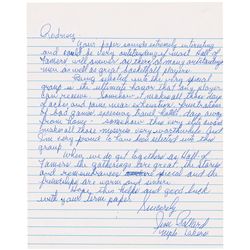 Rodney
Your paper sounds extremely interesting
and could be very outstanding if most Hall of
Famers will answer as they are many outstanding
men as well as great basketball players.
Being selected into this very special
group is the ultimate honor that any player
can receive. Somehow it makes all those days
of aches and pains, near exhaustion, frustration
of bad games, season travel, hotel days away
from home - somehow this very elite honor
makes all those memories very worthwhile. Just
am very proud to have been elected into this
group.
When we do get together as Hall of
Famers the gatherings are great, the stories
and remembrances special and the
friendships are warm and sincere.
Hope this helps and good luck
with your term paper.
Sincerely
Jim Pollard
Mpls Lakers